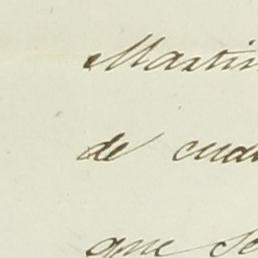 Martin
de cua
que se